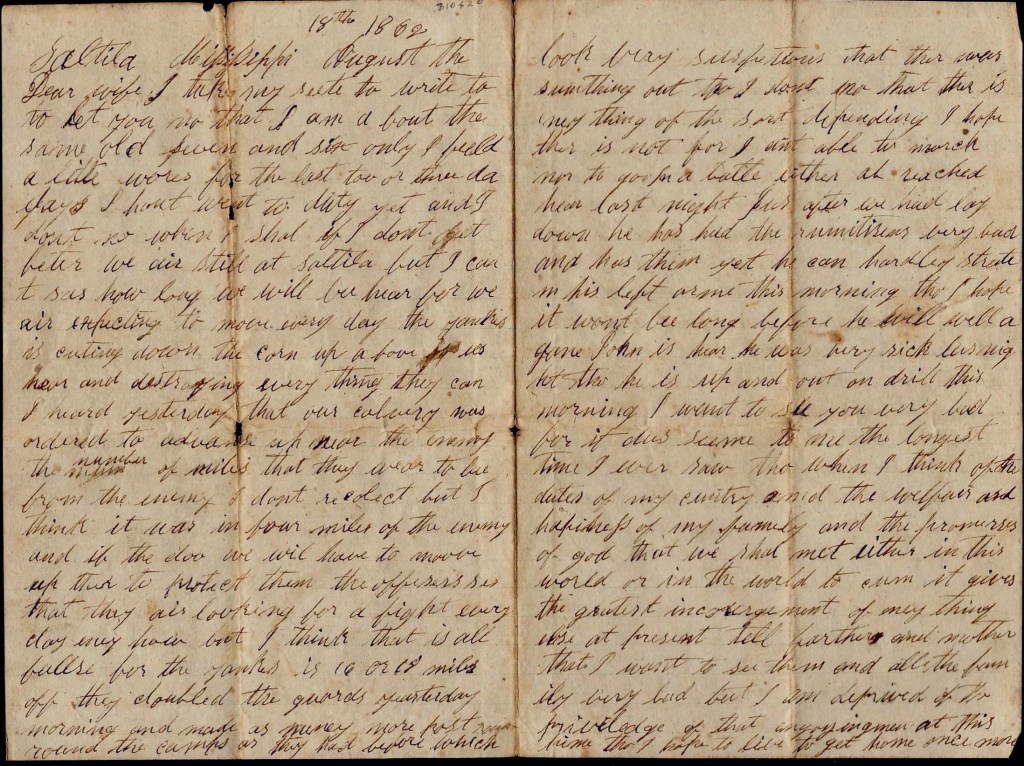 18th 1862
Saltila Missippi August the
Dear wife I take my seete to write to
to let you no that I am a bout the
same old seven and six only I feeld
a little wores for the last too or three da
days I hant went to duty yet and I
dont no when I shal if I dont get
beter we air still at saltila but I can
t sas how long we will bee hear for we
air expecting to move every day the yankes
is cuting down the corn up a bove us
hear and destroying every thing they can
I heard yesterday that our calvary was
ordered to advanse up near the enemy
the number of miles that they wear to be
from the enemy I dont recolect but I
think it was in four miles of the enemy
and if the doo we wil have to moove
up ther to protect them the offesers ses
that they air looking for a fight every
day eney how but I think that is all
fallse for the yankes is 16 or 18 miles
off they doubled the guards yesterday
morning and made as meney more post
round the camps as they had before which
look very suspetious that ther was
sumthing out tho I dont no that ther is
eney thing of the sort depending I hope
ther is not for I aint able to march
nor to go in a batle either ab reached
hear last night jus after we had lay
down he has had the rumitisens very bad
and has them yet he can hardley strate
n his left arme this morning tho I hope
it wont bee long before he will well a
gane John is hear he was very sick las nig
ht tho he is up and out on drill this
morning I want to see you very bad
for it dus seeme to mee the longest
time I ever saw tho when I think of the
duties of my cuntry and the welfair and
hapiness of my family and the promuses
of god that we shal met either in this
world or in the world to cum it gives
the gratest incouregement of eney thing
else at present tell farther and mother
that I want to see them and all the fam
ily very bad but I am deprived of the
priveledge of that at this
time tho I hope to live to get home once more